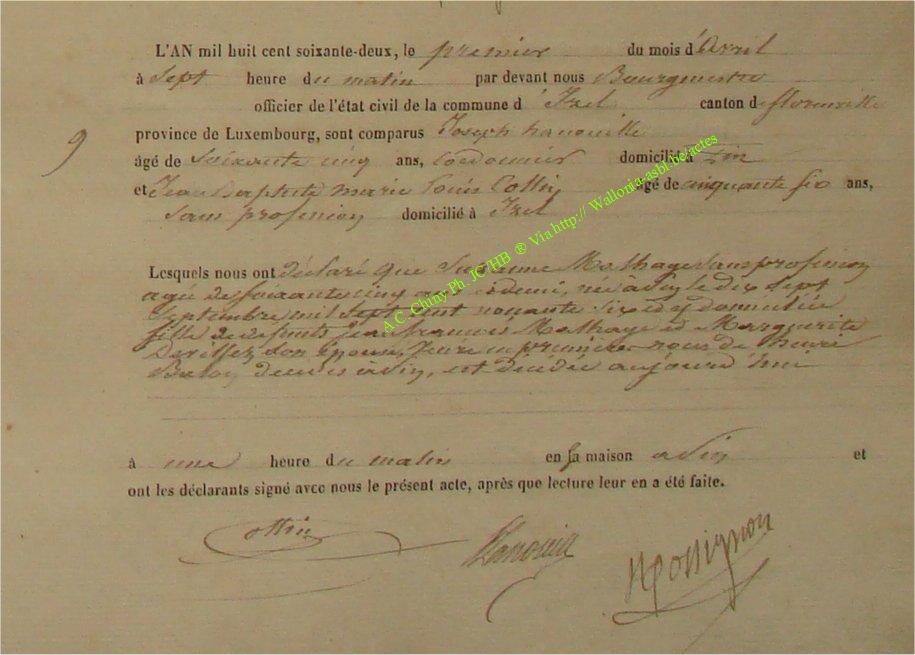 L'AN mil huit cent soixante-deux, le premier du mois d'Avril
à Sept heure du matin par devant nous Bourgmestre
officier de l'état civil de la commune d'Izel canton de florenville
province de Luxembourg, sont comparus Joseph hanouille
9
âgé de Soixante cinq ans, Cordonnier domicilié à
et Jean Baptiste marie Louis Collin gé de cinquante six ans,
Sans profession domicilié à Izel
Lesquels nous ont déclaré que Suzanne Mathage Sans profession
agée de Soixante cinq ans et demi, née a le dix Sept
Septembre mil Sept cent nonante Six et y domiciliée
fille de defunts Jean françois Mathage et Marguerite
Son épouse, Veuve en premières noces de henri
decedé à, est décédée aujourd'hui
à une heure du matin en Sa maison a et
ont les déclarants signé avec nous le présent acte, après que lecture leur en a été faite.
A.C. Chiny Ph. JC/HB ® Via http:// Wallonia-asbl.be/actes